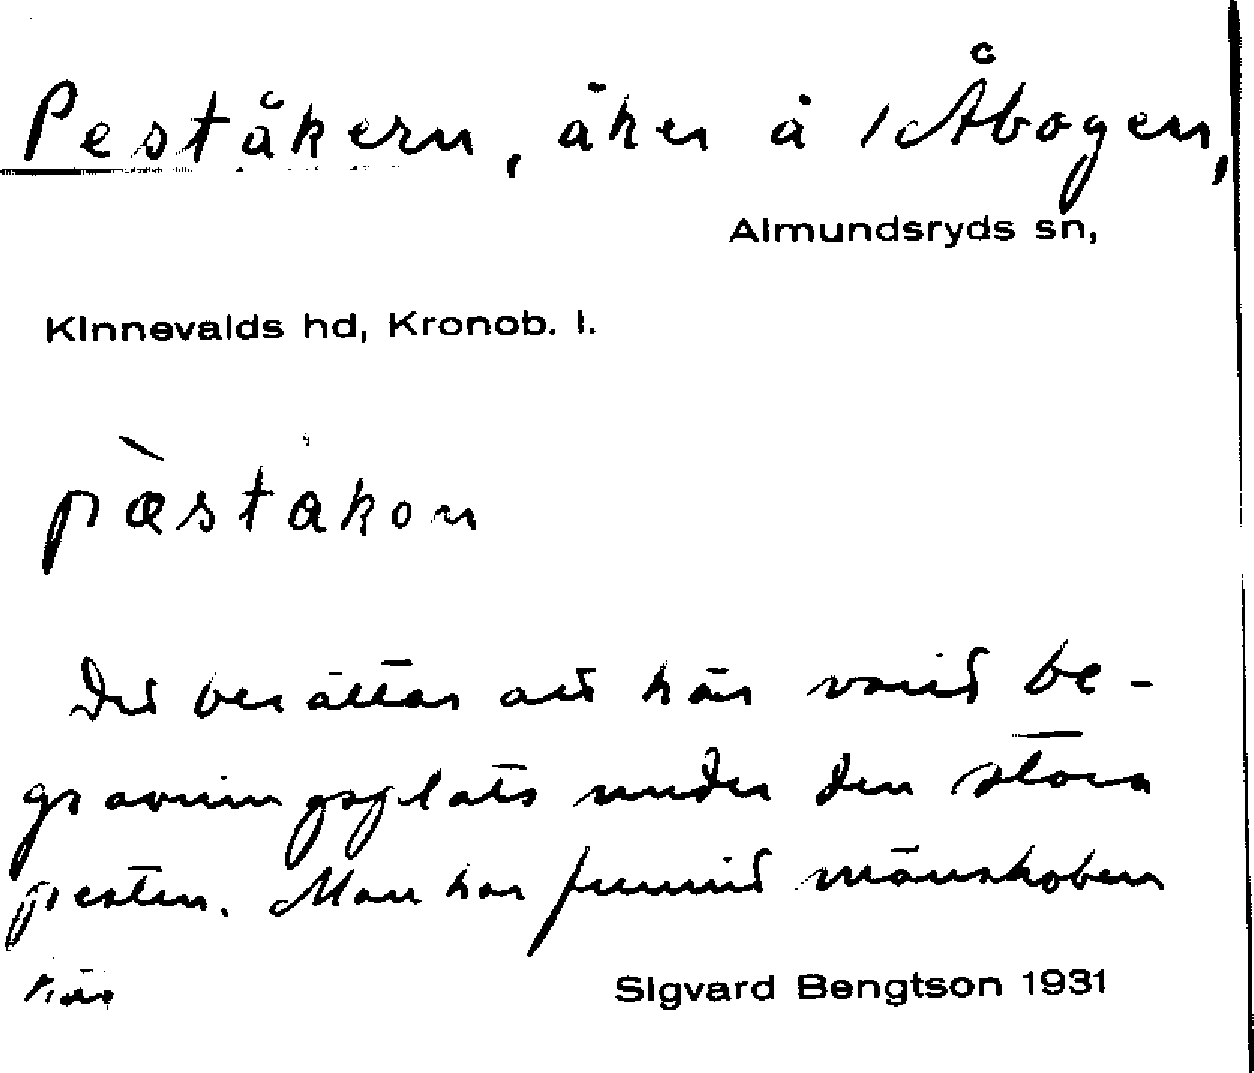 Peståkern, åker å 1 Åbogen,
Almundsryds sn,
Kinnevalds hd, Kronob. l.
pæ̀stakon
Det berättas att här varit be-
gravningsplats under den stora
pesten. Man har funnit mänskoben
här
Sigvard Bengtson 1931